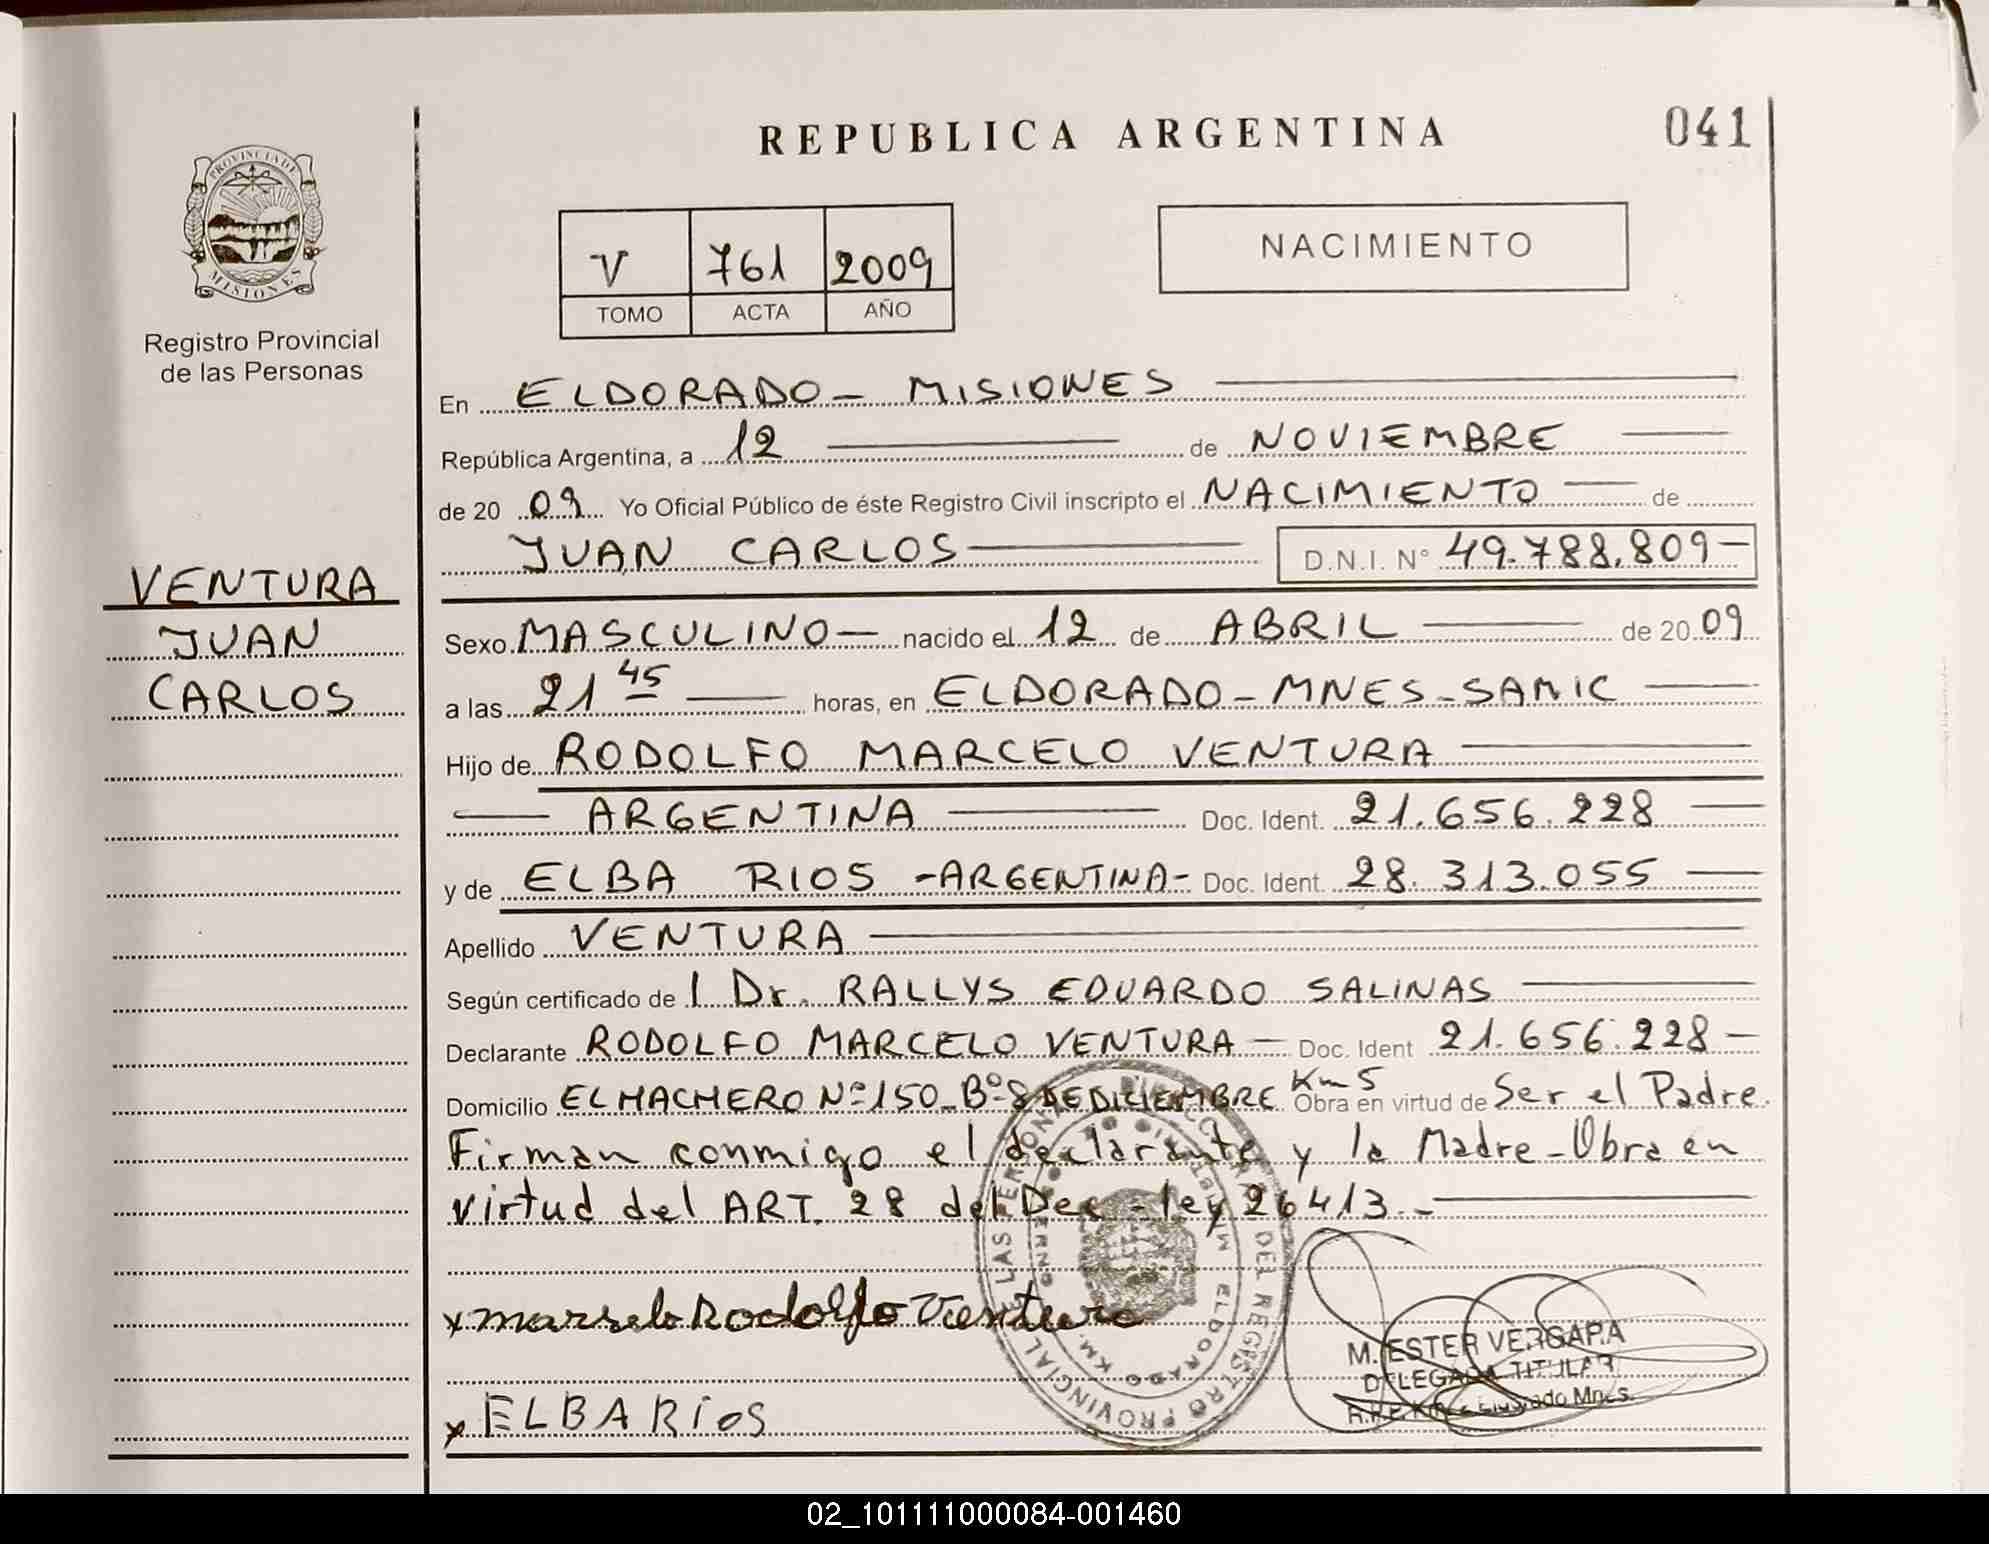 REPUBLICA ARGENTINA
041
PROVINCIA DE
MISIONES
Registro Provincial
de las Personas
V 761 2009
TOMO ACTA AÑO
NACIMIENTO
VENTURA
JUAN
CARLOS
En ELDORADO - MISIONES
República Argentina, a 12 de NOVIEMBRE
de 20 09 Yo Oficial Público de éste Registro Civil inscripto el NACIMIENTO de
JUAN CARLOS D.N.I. N° 49.788.809-
Sexo MASCULINO nacido el 12 de ABRIL de 20 09
a las 21 45 horas, en ELDORADO - MNES - SAMIC
Hijo de RODOLFO MARCELO VENTURA
ARGENTINA Doc. Ident. 21.656.228
y de ELBA RIOS - ARGENTINA - Doc. Ident. 28.313.055
Apellido VENTURA
Según certificado de l Dr. RALLYS EDUARDO SALINAS
Declarante RODOLFO MARCELO VENTURA - Doc. Ident 21.656.228 -
Domicilio EL HACHERO Nº 150 - Bº 8 DE DICIEMBRE Km 5 Obra en virtud de Ser el Padre.
Firman conmigo el declarante y la Madre - Obra en
virtud del ART. 28 del Dec - ley 26413. -
x marselo Rodolfo Ventura
x ELBA RíOS
M. ESTER VERGARA
DELEGADA TITULAR
Eldorado Mnes.
REGISTRO PROVINCIAL
ELDORADO KM.
02_101111000084-001460